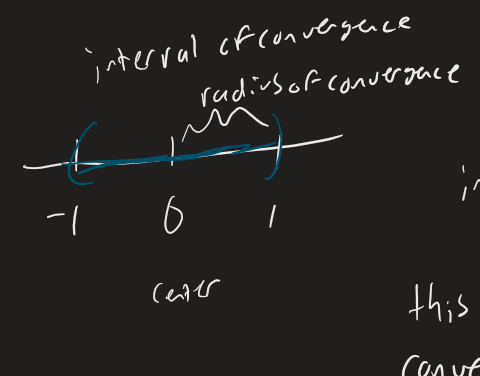 interval of convergence
radius of convergence
-1 0 1
center
this